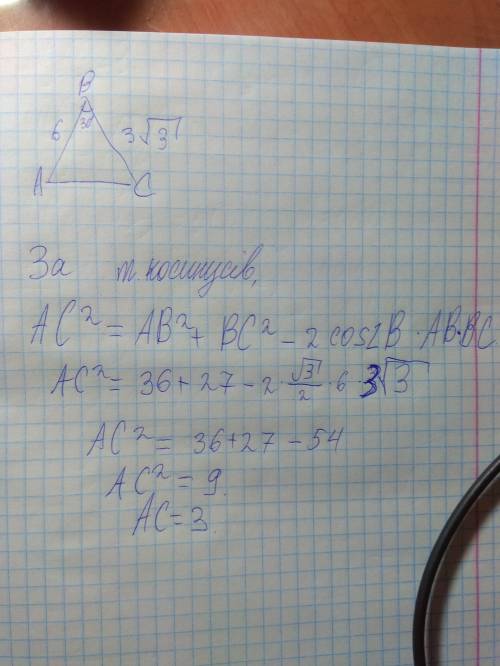 B
30
6
3√3
A
C
За т. косинусів,
AC² = AB² + BC² - 2 cos∠B · AB · BC
AC² = 36 + 27 - 2 · √3/2 · 6 · 3√3
AC² = 36 + 27 - 54
AC² = 9.
AC = 3.